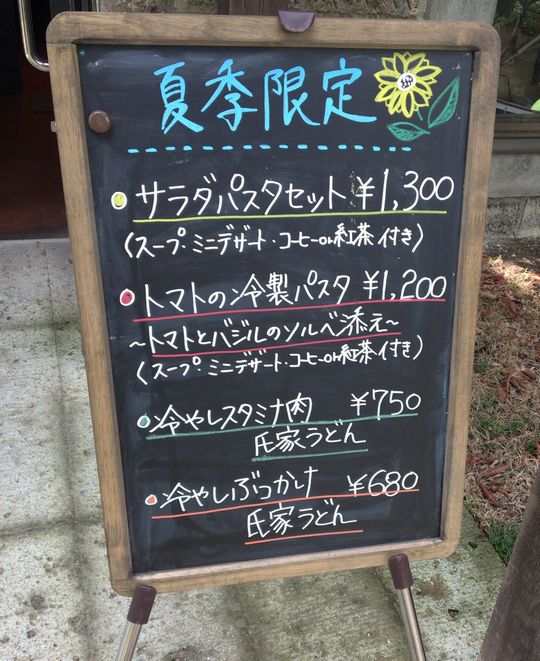 夏季限定
サラダパスタセット ¥1,300
(スープ・ミニデザート・コーヒーor紅茶付き)
トマトの冷製パスタ ¥1,200
~トマトとバジルのソルベ添え~
(スープ・ミニデザート・コーヒーor紅茶付き)
冷やしスタミナ肉 ¥750
氏家うどん
冷やしぶっかけ ¥680
氏家うどん